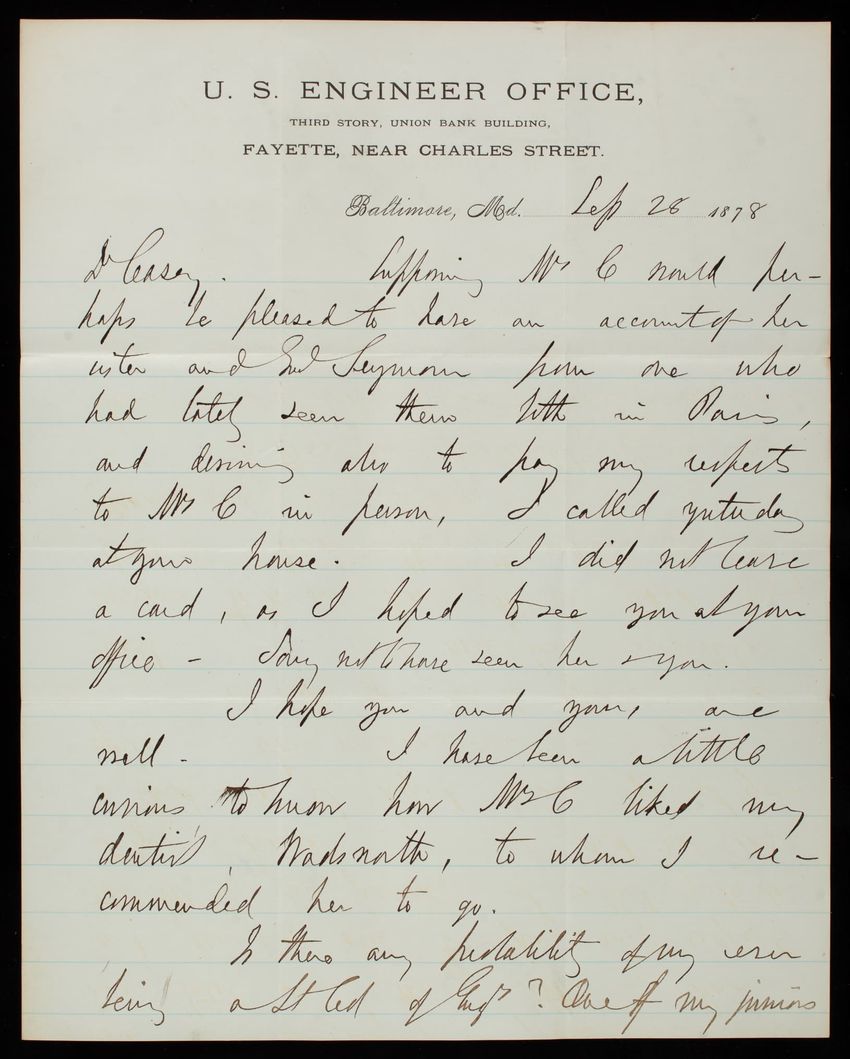 U. S. ENGINEER OFFICE,
THIRD STORY, UNION BANK BUILDING,
FAYETTE, NEAR CHARLES STREET.
Baltimore, Md. Sep 28 1878
Dr Casey. Supposing Mrs C would per-
haps be pleased to have an account of her
sister and Seymour from one who
had lately seen them both in Paris,
and desiring also to pay my respects
to Mrs C in person, I called yesterday
at your house. I did not leave
a card, as I hoped to see you at your
office - Sorry not to have seen her & you.
I hope you and yours are
well - I have been a little
curious to know how Mrs C liked my
dentist, Wadsworth, to whom I re-
commended her to go.
Is there any probability of my ever
being a Lt Col of Engrs? One of my juniors